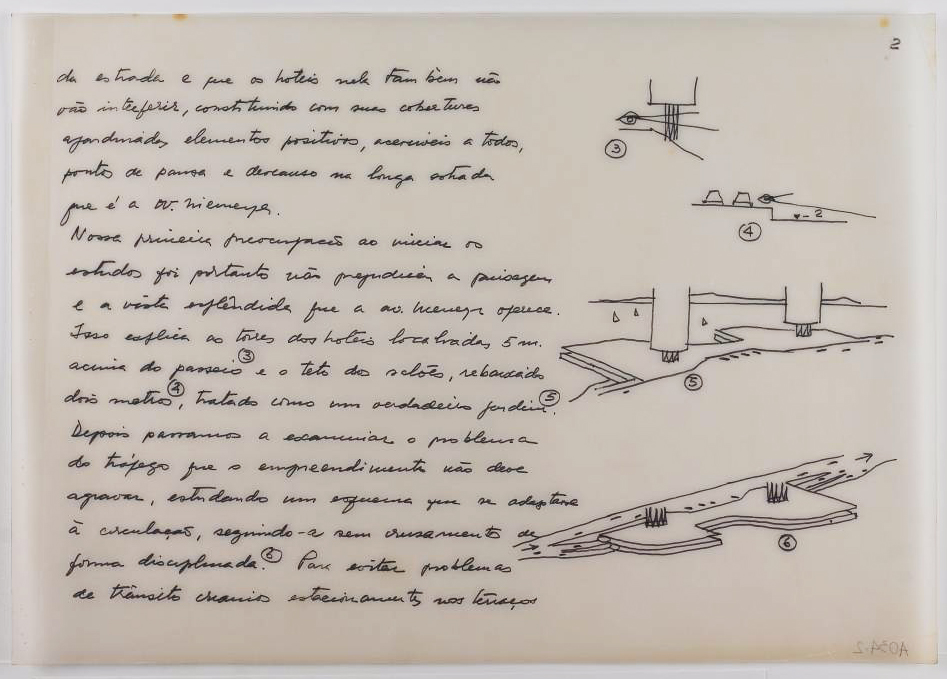 2
da estrada e que os hoteis nela também não
vão interferir, constituindo com suas coberturas
ajardinadas elementos positivos, acessíveis a todos,
pontos de pausa e descanso na longa estrada
que é a av. Niemeyer.
Nossa primeira preocupação ao iniciar os
estudos foi portanto não prejudicar a paisagem
e a vista esplêndida que a av. Niemeyer oferece.
Isso explica as torres dos hoteis localizadas 5 m.
acima do passeio ③ e o teto dos salões, rebaixado
dois metros ④, tratado como um verdadeiro jardim. ⑤
Depois passamos a examinar o problema
do tráfego que o empreendimento não deve
agravar, estudando um esquema que se adaptasse
à circulação, seguindo-a sem cruzamento de
forma disciplinada. ⑥ Para evitar problemas
de trânsito criamos estacionamentos nos terraços
③
- 2
④
⑤
⑥
A034-2